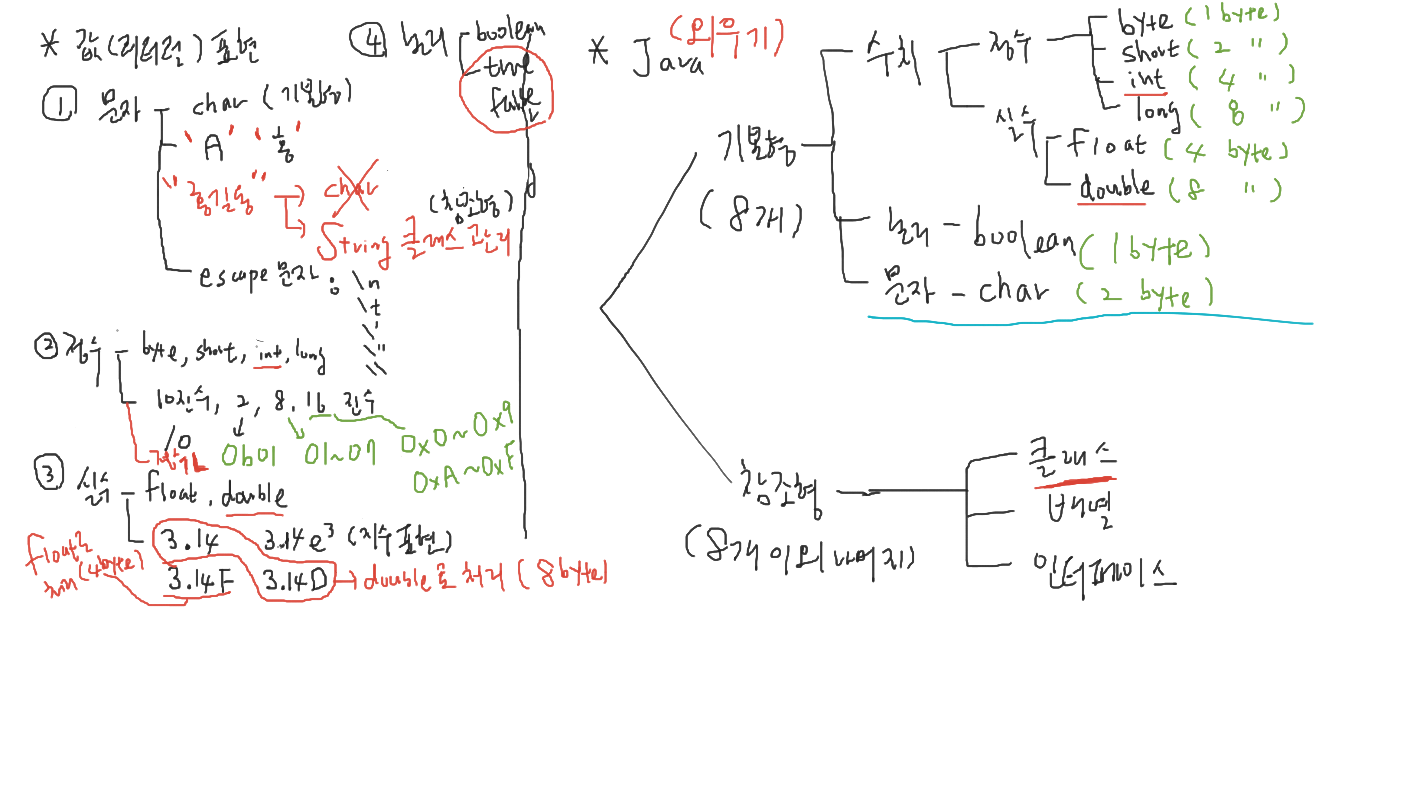 * 값(리터럴) 표현
① 문자 char (기본형)
'A' '홍'
"홍길동" → char
→ String 클래스 관리
(참조형)
escape 문자 : \n
\t
\'
\"
\\
② 정수 - byte, short, int, long
10진수, 2, 8, 16 진수
10
0b01 01~07 0x0~0x9
0xA~0xF
③ 실수 - float, double
3.14 3.14e3 (지수표현)
3.14F 3.14D → double로 처리 (8byte)
float로
처리 (4byte)
④ 논리 boolean
true
false
* Java (외우기)
기본형
(8개)
수치 정수 byte (1 byte)
short (2 ")
int (4 ")
long (8 ")
실수 float (4 byte)
double (8 ")
논리 - boolean (1 byte)
문자 - char (2 byte)
참조형
(8개 이외 나머지)
클래스
배열
인터페이스